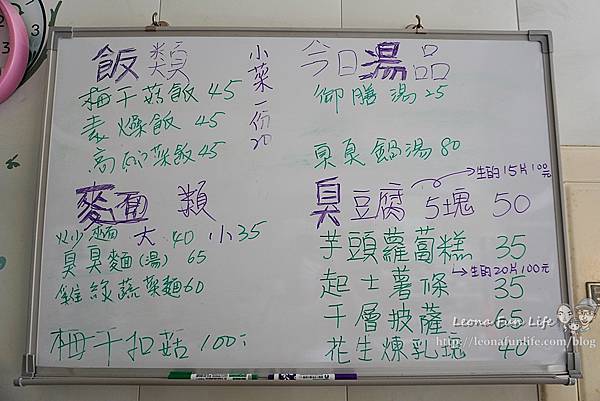 飯類
小菜一份20
梅干菇飯 45
素燥飯 45
高麗菜飯 45
麵類
炒麵 大 40 小 35
臭臭麵(湯) 65
雞絲蔬菜麵 60
梅干扣菇 100元
今日湯品
御膳湯 25
臭臭鍋湯 80
生的15片100元
臭豆腐 5塊 50
芋頭蘿蔔糕 35
生的20片100元
起士薯條 35
千層披薩 65
花生煉乳塊 40
Leona Fun Life
http://leonafunlife.com/blog